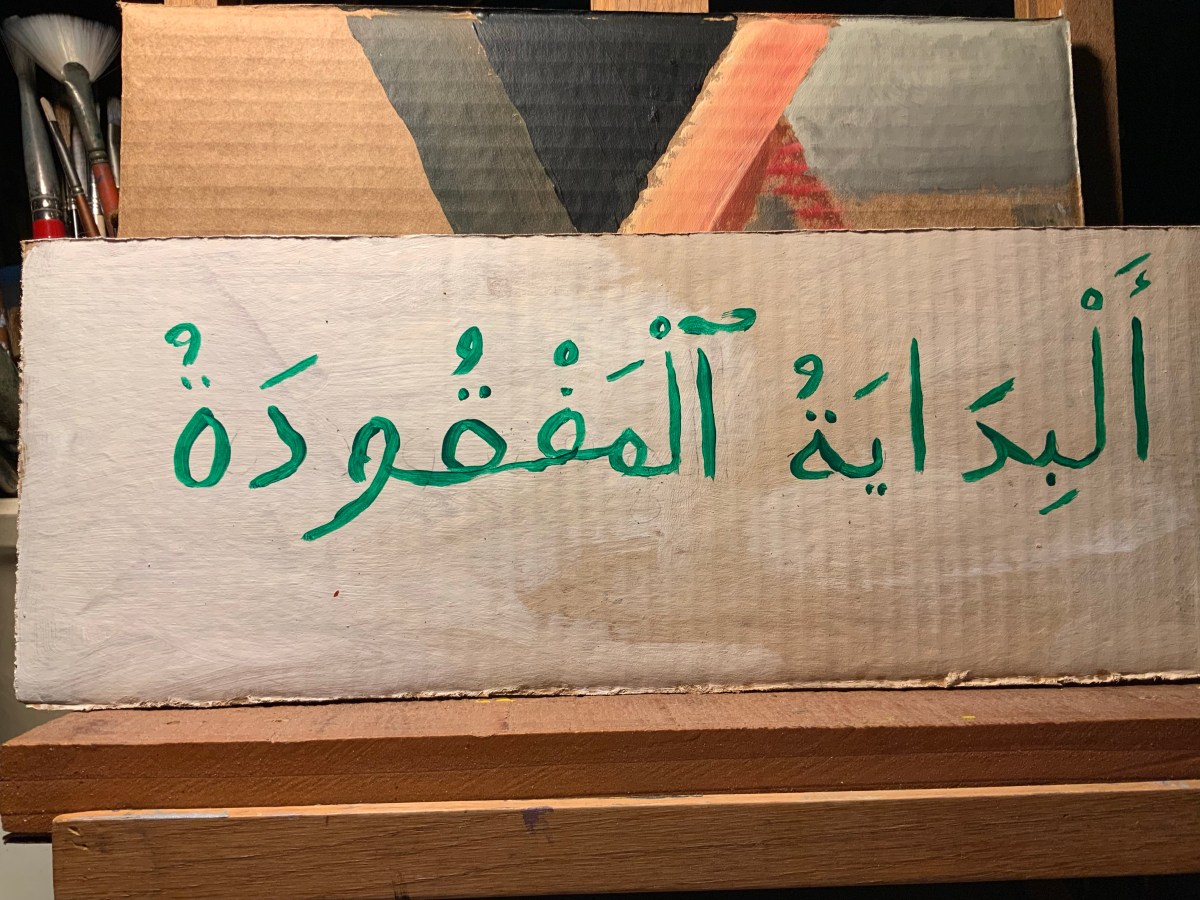 أَلْبِدَايَةُ ٱلْمَفْقُودَةُ